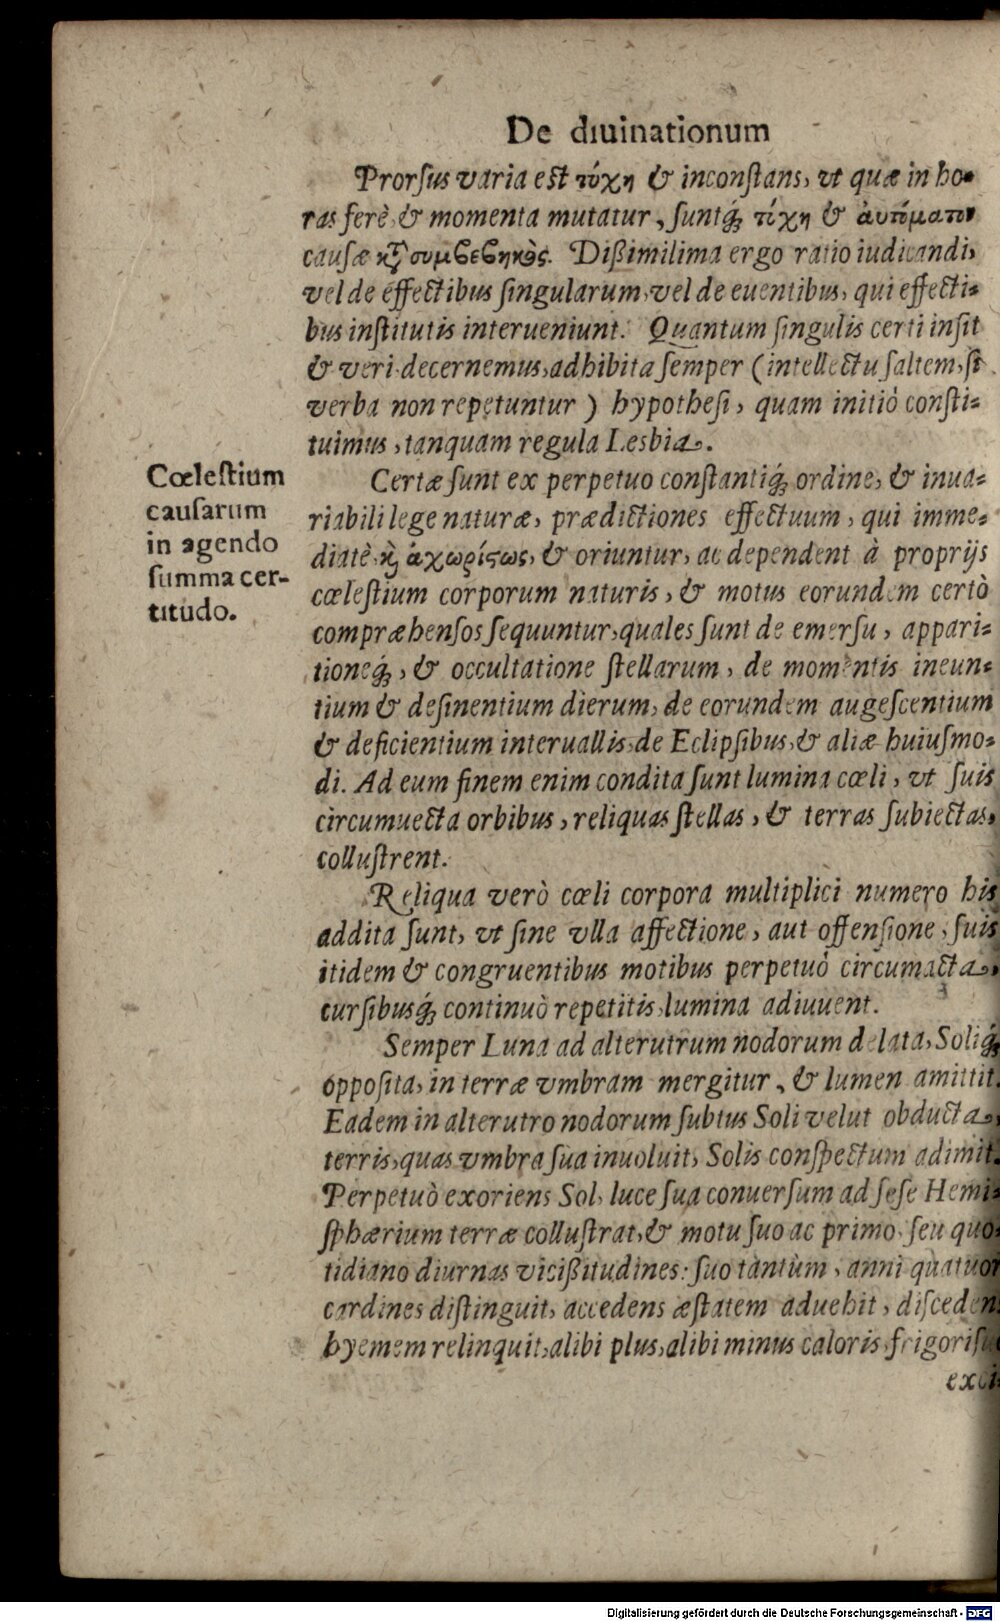 De diuinationum
Prorſus varia eſt τύχη & inconſtans, vt quæ in ho-
ras ferè & momenta mutatur, ſuntq́; τύχη & ἀυτόματον
cauſæ κτ̀ συμβεβηκὸς. Dißimilima ergo ratio iudicandi,
vel de effectibus ſingularum, vel de euentibus, qui effecti-
bus inſtitutis interueniunt. Quantum ſingulis certi inſit
& veri decernemus, adhibita ſemper (intellectu ſaltem, ſi
verba non repetuntur) hypotheſi, quam initiò conſti-
tuimus, tanquam regula Lesbia.
Cœleſtium
cauſarum
in agendo
ſumma cer-
titudo.
Certæ ſunt ex perpetuo conſtantiq́; ordine, & inua-
riabili lege naturæ, prædictiones effectuum, qui imme-
diatè κ̀ ἀχωρίςως, & oriuntur, ac dependent à proprijs
cœleſtium corporum naturis, & motus eorundem certò
compræhenſos ſequuntur, quales ſunt de emerſu, appari-
tioneq́;, & occultatione ſtellarum, de momentis ineun-
tium & deſinentium dierum, de eorundem augeſcentium
& deficientium interuallis, de Eclipſibus, & aliæ huiuſmo-
di. Ad eum finem enim condita ſunt lumina cœli, vt ſuis
circumuecta orbibus, reliquas ſtellas, & terras ſubiectas,
colluſtrent.
Reliqua verò cœli corpora multiplici numero his
addita ſunt, vt ſine vlla affectione, aut offenſione, ſuis
itidem & congruentibus motibus perpetuò circumacta,
curſibusq́; continuò repetitis, lumina adiuuent.
Semper Luna ad alterutrum nodorum delata, Soliq́;
oppoſita, in terræ vmbram mergitur, & lumen amittit.
Eadem in alterutro nodorum ſubtus Soli velut obducta,
terris, quas vmbra ſua inuoluit, Solis conſpectum adimit.
Perpetuò exoriens Sol, luce ſua conuerſum ad ſeſe Hemi-
ſphærium terræ colluſtrat, & motu ſuo ac primo, ſeu quo-
tidiano diurnas vicißitudines: ſuo tantùm, anni quatuor
cardines diſtinguit, accedens æſtatem aduehit, diſcedens
hyemem relinquit, alibi plus, alibi minus caloris,
exci-
Digitalisierung gefördert durch die Deutsche Forschungsgemeinschaft - DFG